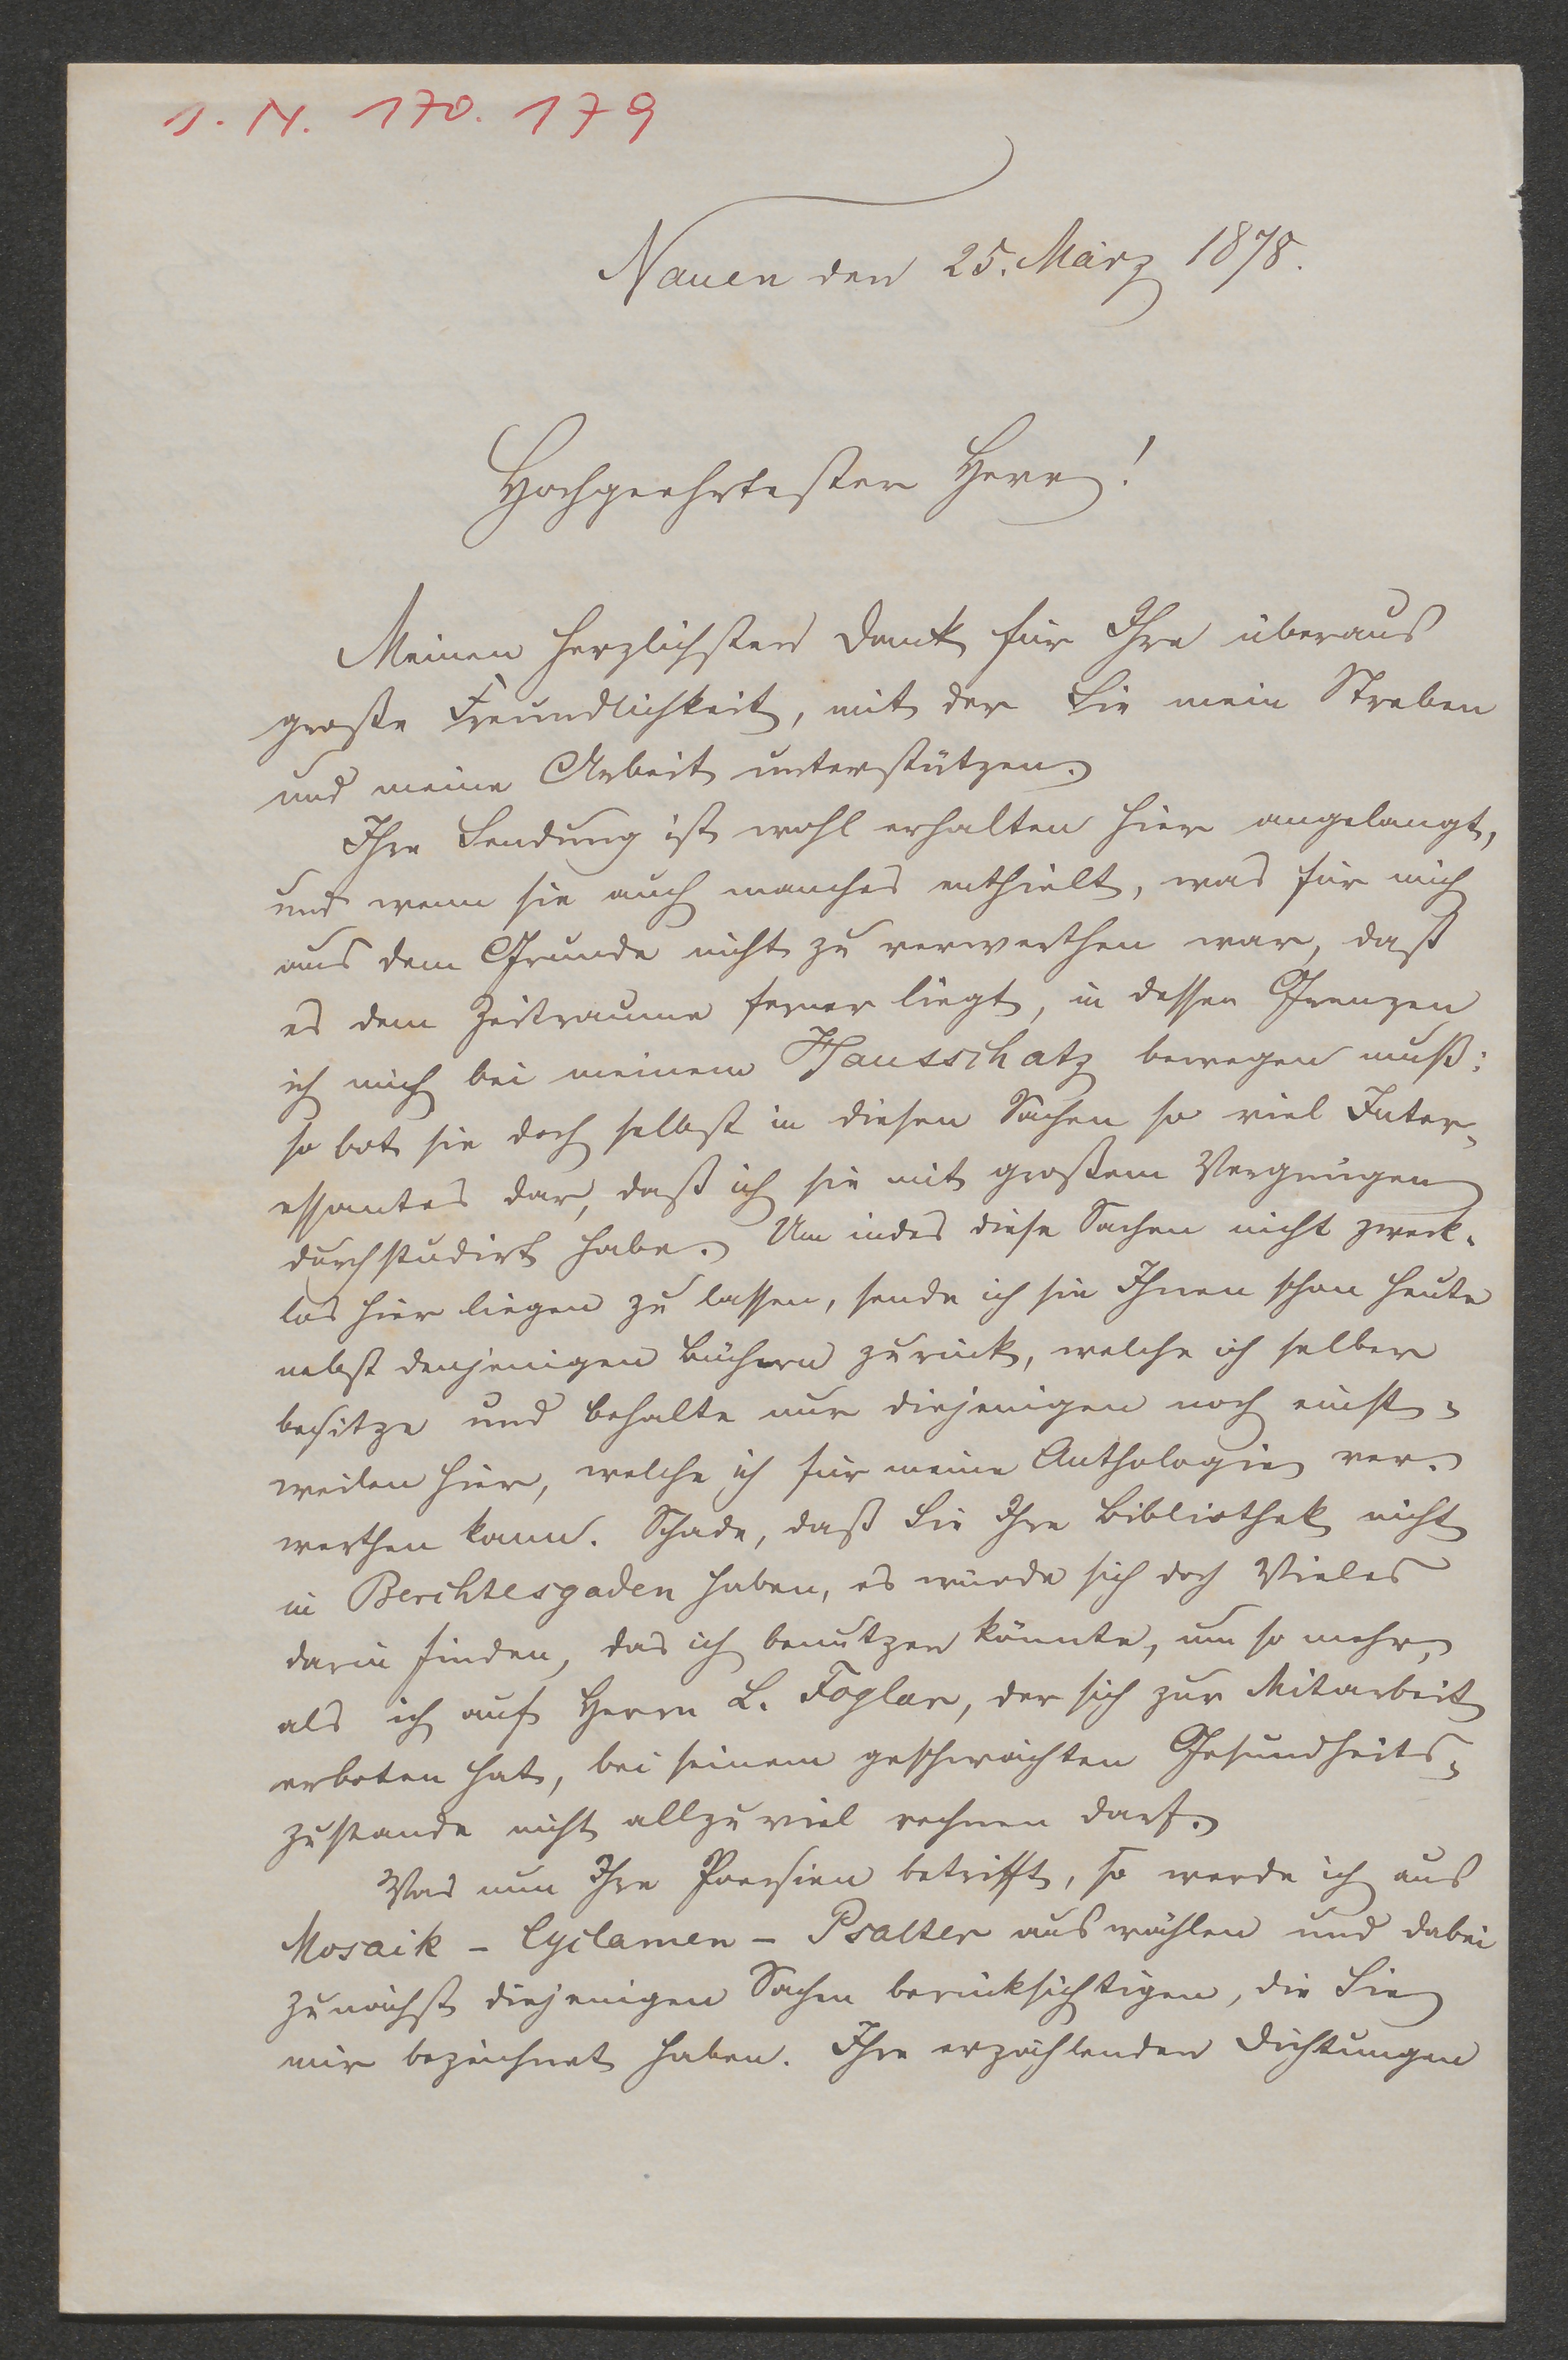 I. N. 170.179
Nauen den 25. März 1878.
Hochgeehrtester Herr!
Meinen herzlichsten Dank für Ihre überaus
große Freundlichkeit, mit der Sie mein Streben
und meine Arbeit unterstützen.
Ihre Sendung ist wohl erhalten hier angelangt,
und wenn sie auch manches enthielt, was für mich
aus dem Grunde nicht zu verwerthen war, daß
es dem Zeitraume ferner liegt, in dessen Grenzen
ich mich bei meinem Hausschatz bewegen muß:
so bot sie doch selbst in diesen Sachen so viel Inter-
essantes dar, daß ich sie mit großem Vergnügen
durchstudirt habe. Um indes diese Sachen nicht zweck-
los hier liegen zu lassen, sende ich sie Ihnen schon heute
nebst denjenigen Büchern zurück, welche ich selber
besitze und behalte nur diejenigen noch einst-
weilen hier, welche ich für meine Anthologie ver-
werthen kann. Schade, daß Sie Ihre Bibliothek nicht
in Berchtesgaden haben, es würde sich doch Vieles
darin finden, das ich benutzen könnte, um so mehr,
als ich auf Herrn L. Foglar, der sich zur Mitarbeit
erboten hat, bei seinem geschwächten Gesundheits-
zustande nicht allzuviel rechnen darf.
Was nun Ihre Poesien betrifft, so werde ich aus
Mosaik - Cyclamen - Psalter auswählen und dabei
zunächst diejenigen Sachen berücksichtigen, die Sie
mir bezeichnet haben. Ihre erzählenden Dichtungen